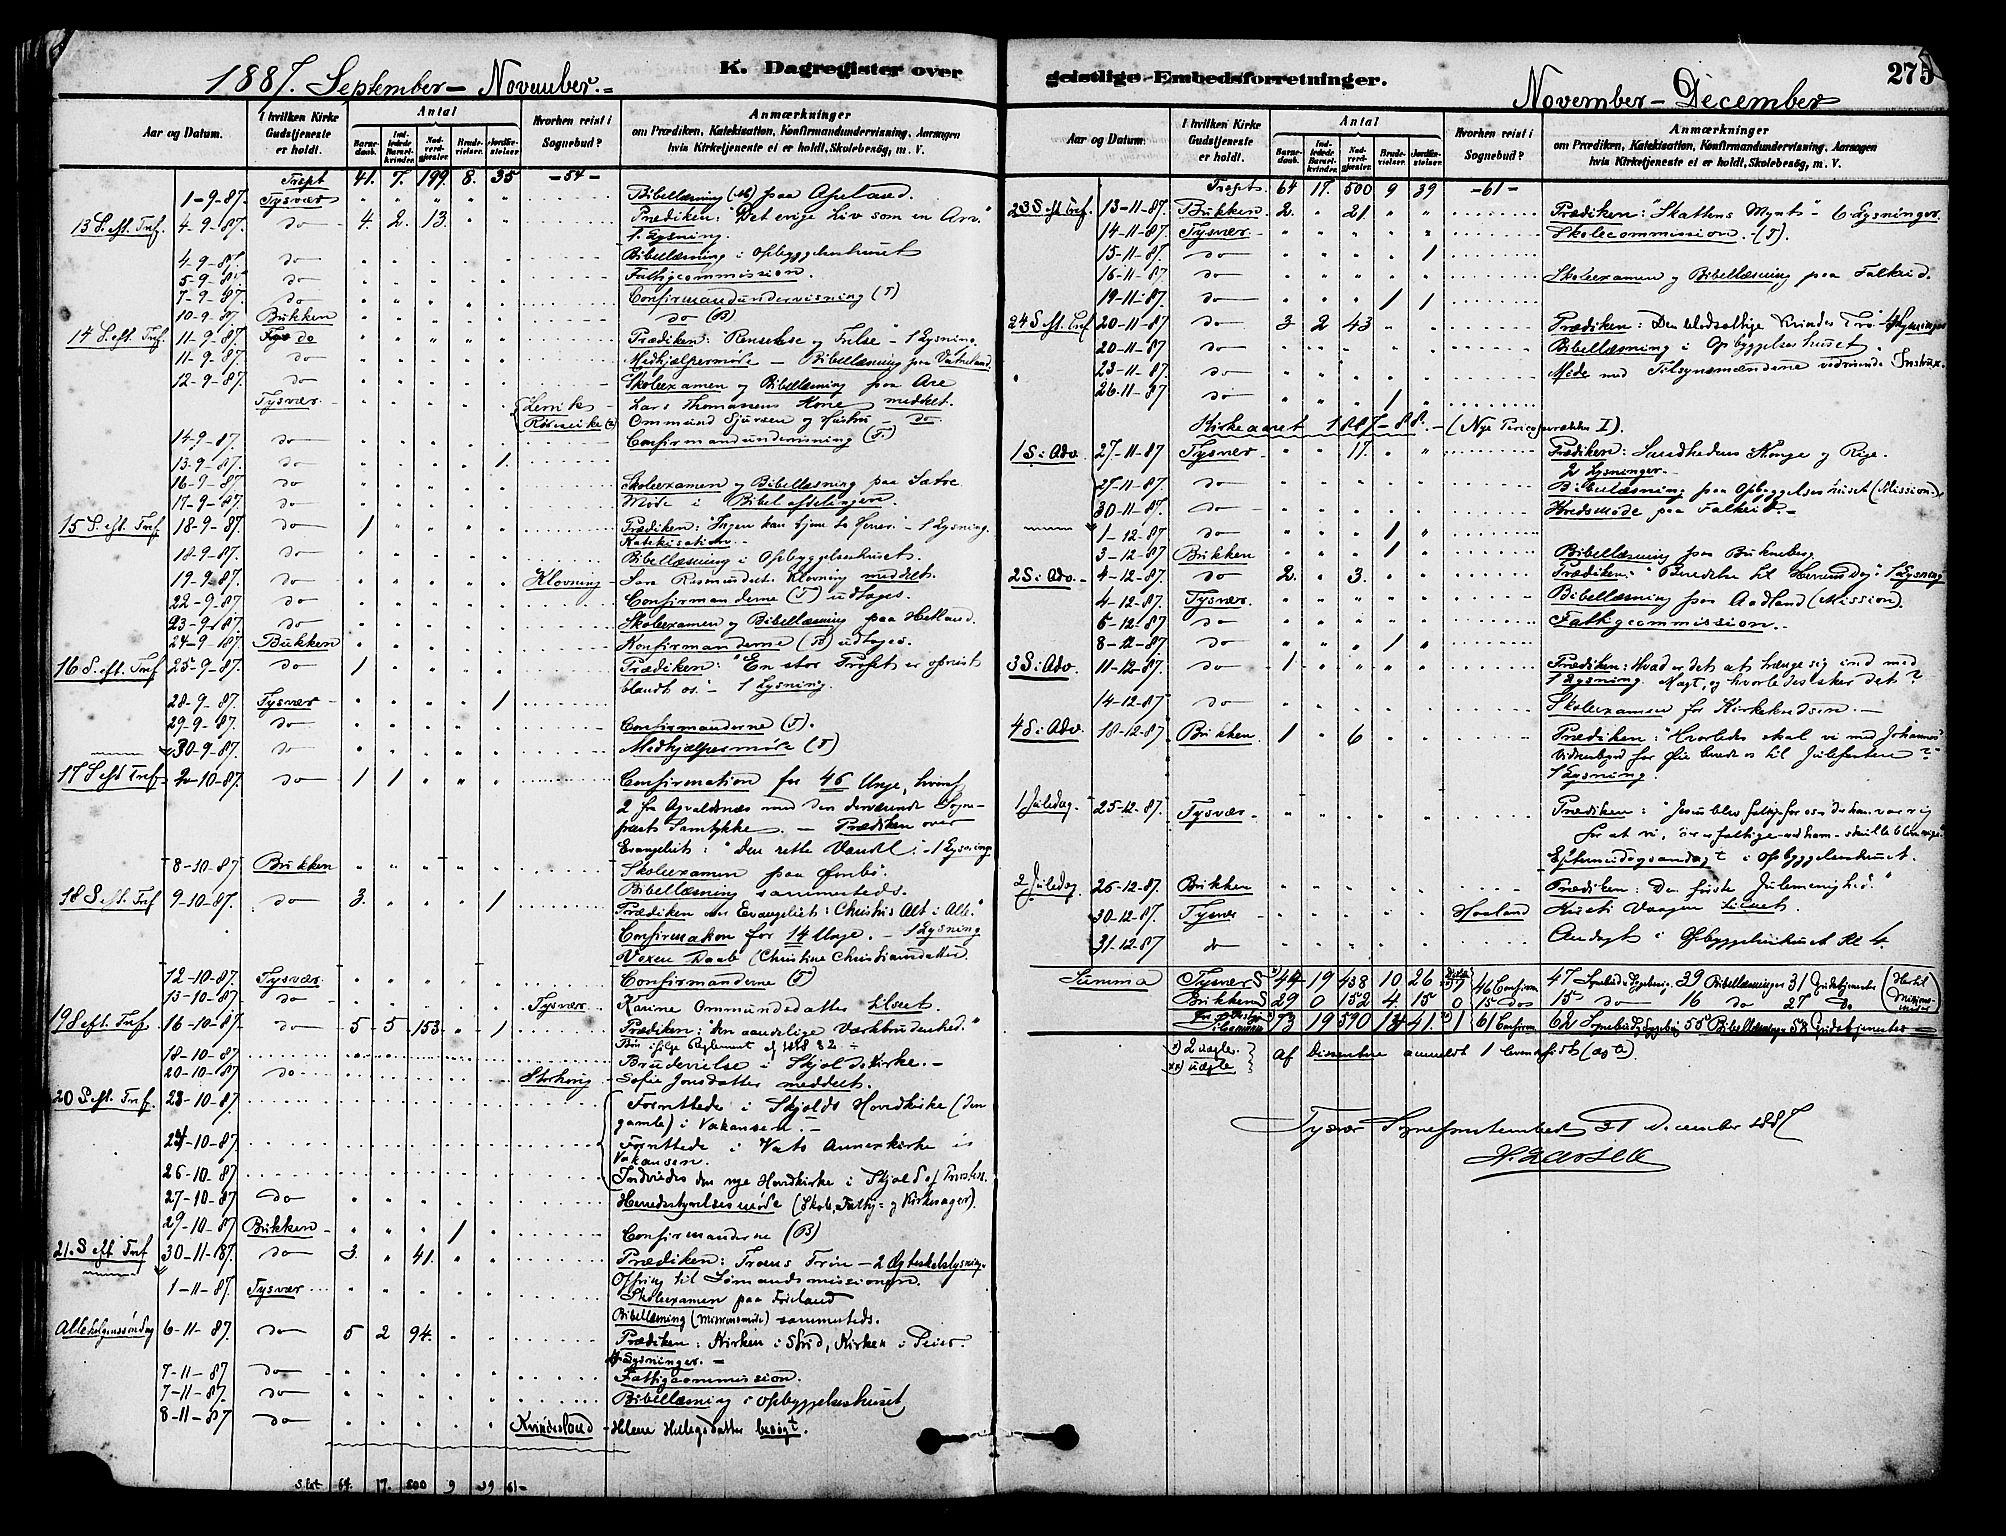 K. Dagregister over
1887. September – November.
Aar og Datum. | I hvilken Kirke Gudstjeneste er holdt. | Antal | Barnedaab. | Indledede Barselkvinder. | Nadverdgjæster. | Brudevielser. | Jordfæstelser. | Hvorhen reist i Sognebud? | Anmærkninger om Prædiken, Katekisation, Konfirmandundervisning, Aarsagen hvis Kirketjeneste ei er holdt, Skolebesøg, m. V.
Trspt 41. 7. 199. 8. 35 – 54 –
1-9-87. Tysvær Bibellæsning paa Apeland.
13 S. eft. Tref. 4-9-87. do 4. 2. 13. Prædiken: "Det evige Liv som en Arv."
1. Lysning.
4-9-87. do Bibellæsning i Opbyggelseshuset
5-9-87. do Fattigcommission.
7-9-87. do Confirmandundervisning (T)
10-9-87 Bukken do (B)
14 S. eft. Tref. 11-9-87. do Prædiken: "Renselse og Frelse" – 1 Lysning.
11-9-87. do Medhjælpermøde – Bibellæsning paa Vatneland.
12-9-87. do Skoleexamen og Bibellæsning paa Are
Tysvær Lervik – Lars Thomassens Kone meddelt.
Ommund Sjursen og Hustru – do
14-9-87. do Confirmandundervisning (T.)
13-9-87. do 1.
16-9-87 do Skoleexamen og Bibellæsning paa Sætre
17-9-87 do Møde i Bibelafdelingen.
15 S. eft. Tref 18-9-87. do 1 Prædiken: "Ingen kan tjene to Herrer" – 1 Lysning.
Katekisation.
18-9-87. do Bibellæsning i Opbyggelseshuset.
19-9-87. do Klovning – Klovning meddelt.
22-9-87. do Confirmanderne (T) udtages.
23-9-87. do Skoleexamen og Bibellæsning paa Hetland.
24-9-87. Bukken Konfirmanderne (B) udtages.
16 S. eft. Tref 25-9-87. do 1 Prædiken: "En stor Profet er opreist
blandt os." – 1 Lysning.
28-9-87. Tysvær 1
29-9-87. do Confirmanderne (T).
30-9-87. do Medhjælpermøde (T)
17 S eft Tref 2-10-87. do 1 1 Confirmation for 46 Unge, hvoraf
2 fra Avaldsnæs med den derværende Sogne-
præsts Samtykke. – Prædiken over
Evangeliet: "Den rette Vandel." – 1 Lysning
8-10-87 Bukken Skoleexamen paa Ømbø.
Bibellæsning sammesteds.
18 S eft. Tref 9-10-87. do 3. 1 Prædiken over Evangeliet: Christus Alt i Alle."
Confirmation for 14 Unge. – 1 Lysning
Voxen Daab (Christine Christiansdatter)
12-10-87. Tysvær Confirmanderne (T)
13-10-87 do Tysvær. Karine Ommundsdatter tilseet.
19 S eft. Tref 16-10-87. do 5 5 153. 1 Prædiken: "Den aandelige Værkbrudenhed."
18-10-87
20-10-87 do Brudevielse i Skjolds Kirke.
Sofie Jonsdatter meddelt.
20 S. eft. Tref. 23-10-87. Forrettede i Skjolds Hovedkirke (den
gamle) i Vakansen.
24-10-87. Forrettede i Vats Annexkirke i
Vakansen.
26-10-87. Indviedes den nye Hovedkirke i Skjold af Provsten.
27-10-87 do Herredsstyrelsesmøde (Skole, Fattig- og Kirkesager).
29-10-87 Bukken 1 Confirmanderne (B)
21. S eft Tref 30-11-87. do 3. 41. Prædiken: Troens Trin – 2 Ægteskabslysning.
Offring til Sømandsmissionen.
1-11-87. Tysvær Skoleexamen paa Førland
Bibellæsning (Missionsmøde) sammesteds.
Allehelgenssøndag 6-11-87. do 5 2 94. Prædiken: Kirken i Strid, Kirken i Seier.
Lysninger.
7-11-87 do Fattigcommission.
7-11-87. do Bibellæsning i Opbyggelseshuset
8-11-87 do Kvindesland – Helene Helgesdatter besøgt.
64. 17. 500 9 39 61 –
geistlige Embedsforretninger.
275
November – December
Aar og Datum. | I hvilken Kirke Gudstjeneste er holdt. | Antal | Barnedaab. | Indledede Barselkvinder. | Nadverdgjæster. | Brudevielser. | Jordfæstelser. | Hvorhen reist i Sognebud? | Anmærkninger om Prædiken, Katekisation, Konfirmandundervisning, Aarsagen hvis Kirketjeneste ei er holdt, Skolebesøg, m. V.
Trspt. 64 17. 500 9 39 – 61 –
23 S eft Tref. 13-11-87. Bukken. 2. 21 Prædiken: "Skattens Mynt" – 6 Lysninger.
14-11-87. Tysvær. Skolecommission. (T).
15-11-87. do 1
16-11-87 do Skoleexamen og Bibellæsning paa Falkeid.
19-11-87. do 1 1
24 S eft. Tref 20-11-87. do 3 2 43 Prædiken: Den blodsottige Kvindes Tro. 4 Lysninger
20-11-87 do Bibellæsning i Opbyggelseshuset.
23-11-87. do Møde med Tilsynsmændene vedrørende Instrux.
26-11-87. do 1
Kirkeaaret 1887 – 88. – (Nye Pericoperække I).
1 S. i Adv. 27-11-87 Tysvær 17. Prædiken: Sandhedens Konge og Rige.
2 Lysninger.
27-11-87 do Bibellæsning paa Opbyggelseshuset (Mission).
30-11-87. do Kredsmøde paa Falkeid.
1-12-87 do 1
3-12-87 Bukken 1 Bibellæsning paa Bukneberg.
2 S. i Adv. 4-12-87. do 2. 3. Prædiken: "Beredelse til Herrens Dag". 1 Lysning
4-12-87. Tysvær. Bibellæsning paa Aadland (Mission).
6-12-87. do Fattigcommission.
8-12-87. do 1 1
3 S. i Adv. 11-12-87. do 1 Prædiken: Hvad er det at trænge sig ind med
1 Lysning. Magt, og hvorledes sker det?
14-12-87. do Skoleexamen for Kirkekredsen.
4 S. i Adv. 18-12-87. Bukken. 1 6 Prædiken: "Hvorledes skal vi med Johannes'
Vidnesbyrd for Øie berede os til Julefesten?"
1 Lysning
1 Juledag. 25-12-87. Tysvær. Prædiken: "Jesus blev fattig for os, da han var rig
for at vi, der er fattige, ved ham skulle blive rige."
Eftermiddagsandagt i Opbyggelseshuset.
2 Juledag 26-12-87. Bukken Prædiken: Den første Julemenighed."
30-12-87. Tysvær Haaland Kirsti Vaagen tilseet.
31-12-87 do Andagt i Opbyggelseshuset Kl 4.
Summa Tysvær S 44 19 438 10 26 46 Confirm 47 39 Bibellæsninger 31 Gudstjenester
Bukken S 29 0 152 4 15 0 15 do 15 do 16 do 27 do
73 19 590 14 41. 1 61 Confirm. 62 55 Bibellæsninger 58 Gudstjenester
x) 2 uægte.
xx) uægte } Af Dissentere anmeldt 1 levendefødt (ægte)
Tysvær Sognepræstembede 31 December 1887